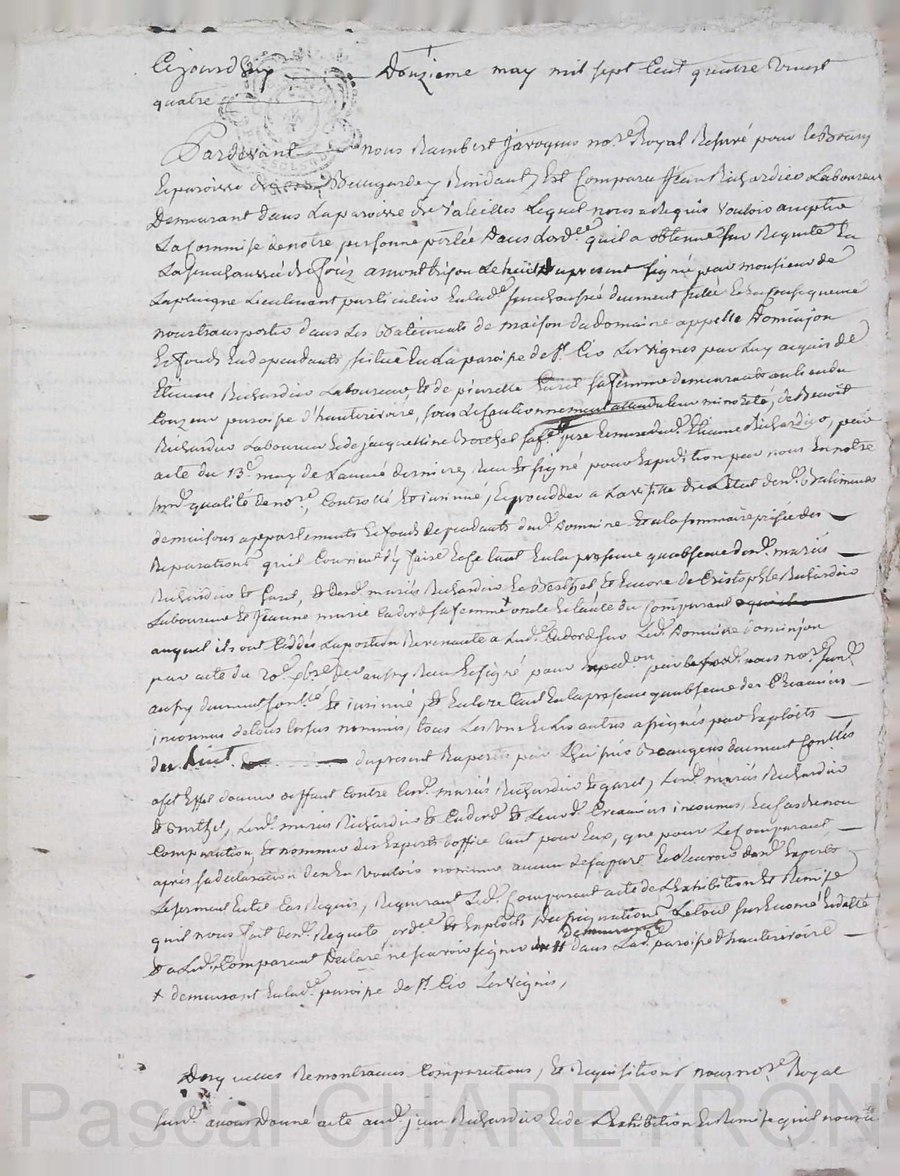 Cejourdhuy douzieme may mil sept cent quatre vingt
quatre
Pardevant nous Rambert Javogues no.re Royal Reservé pour le Bourg
et paroisse de Bellegarde y Residant, Est Comparu Jean Richardier Laboureur
Demeurant dans La paroisse de Valeilles Lequel nous a Requis vouloir accepter
La Commise de notre personne portée dans L'ord.ce qu'il a obtenue sur Requete En
La Senechaussée de forez a montbrison Le huit du present signé par monsieur de
Lieutenant particulier En lad.e Senechaussée duement sellée Et En Consequence
nous transporter dans Les Batiments de maison du domaine appellé Dominjon
Et fonds En dependants, situé En La paroisse de S.t Cir Les Vignes par Luy acquis de
Etienne Richardier Laboureur, Et de pierrette Garet sa femme demeurants au lieu du
paroisse d'hauterivoire, sous Le Cautionnement attendu leur minorité, de Benoit
Richardier Laboureur Et de Jacquelline sa fe. pere Et mere dud. Etienne Richardier, par
acte du 13.e may de L'année derniere, Reçu Et signé pour Expedition par nous En notre
qualité de no.re, Controllé Et insinué, Et proceder a La visitte de L'Etat desd. Batiments
de maisons appartements Et fonds dependants dud. Domaine Et a la sommaire prisée des
Reparations qu'il Convient d'y faire Et ce tant En la presence qu'absence desd. mariés
Richardier Et Garet, Et desd. mariés Richardier Et Et Encore de Cristophle Richardier
Laboureur Et Jeanne marie sa femme oncle Et tante du Comparant
auquel ils ont Ceddés La portion Revenante a lad. sur Led. Domaine Dominjon
par acte du 20.e aussy Reçu Et signé pour par nous no.re
aussy duement Con.llé Et insinué, Et Encore tant En la presence qu'absence des Creanciers
inconnus de tous les sus nommés, tous Les uns Et Les autres assignés par Exploits
du huit du present Raportés par L'huissier duement Conllés
a cet Effet donner deffaut Contre Lesd. mariés Richardier Et garet, Lesd. mariés Richardier
Et, Lesd. mariés Richardier Et Et Leursd. Creanciers inconnus, En Cas de non
Comparution, Et nommer des Experts d'office tant pour Eux, que pour Le Comparant,
après sa declaration d'en En vouloir nommer aucun de sa part Et Recevoir desd. Experts
Le serment En tel Cas Requis, Requerant Led. Comparant acte de L'Exhibition Et Remise
qu'il nous fait desd. Requete, ord.ce Et Exploits d'assignations, Le tout sur
Et a Led. Comparant Declaré ne sçavoir signer demeurant dans Lad. paroisse d'hauterivoire
+ demeurant En lad. paroisse de S.t Cir Les Vignes,
Desquelles Remontrances Comparutions, Et Requisitions nous no.re Royal
avons Donné acte aud. jean Richardier Et de L'Exhibition Et Remise qu'il nous a
Pascal CHAREYRON